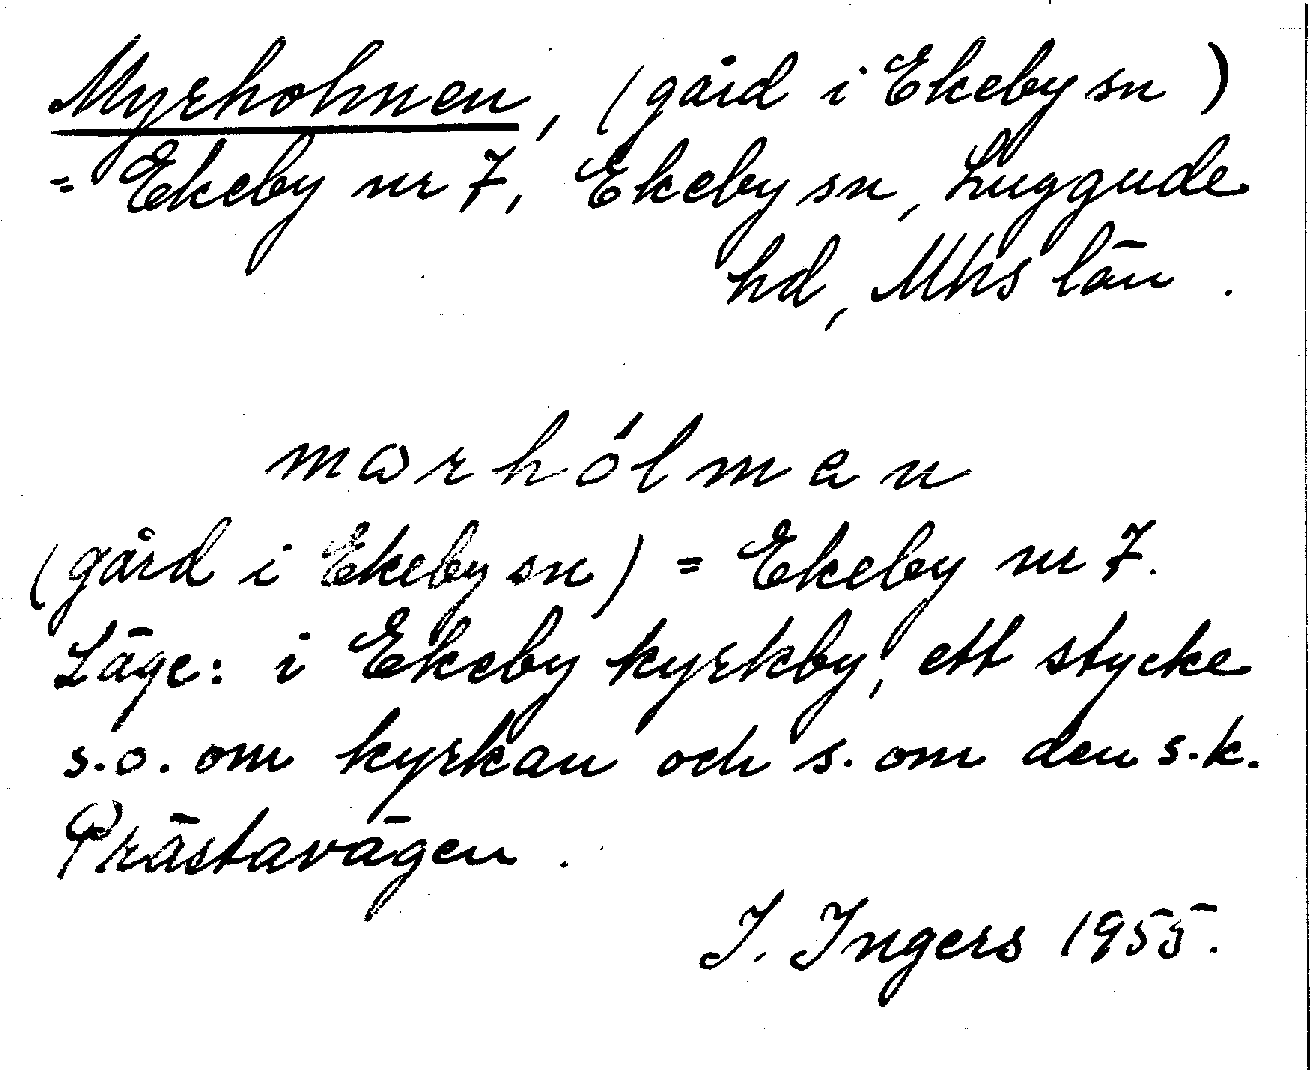 Myrholmen, (gård i Ekeby sn)
= Ekeby nr 7, Ekeby sn, Luggude
hd, Mhs län.
mɷrhólmen
(gård i Ekeby sn) = Ekeby nr 7.
Läge: i Ekeby kyrkby, ett stycke
s.o. om kyrkan och s. om den s.k.
Prästavägen.
I. Ingers 1955.